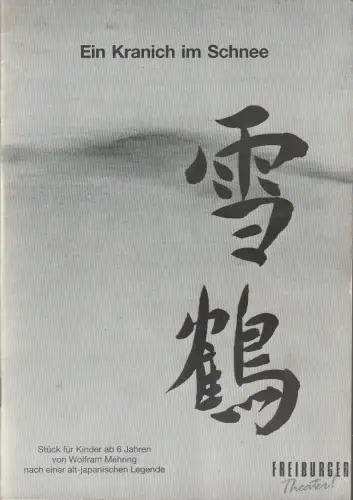 Ein Kranich im Schnee
雪
鶴
Stück für Kinder ab 6 Jahren
von Wolfram Mehring
nach einer alt-japanischen Legende
FREIBURGER
Theater!